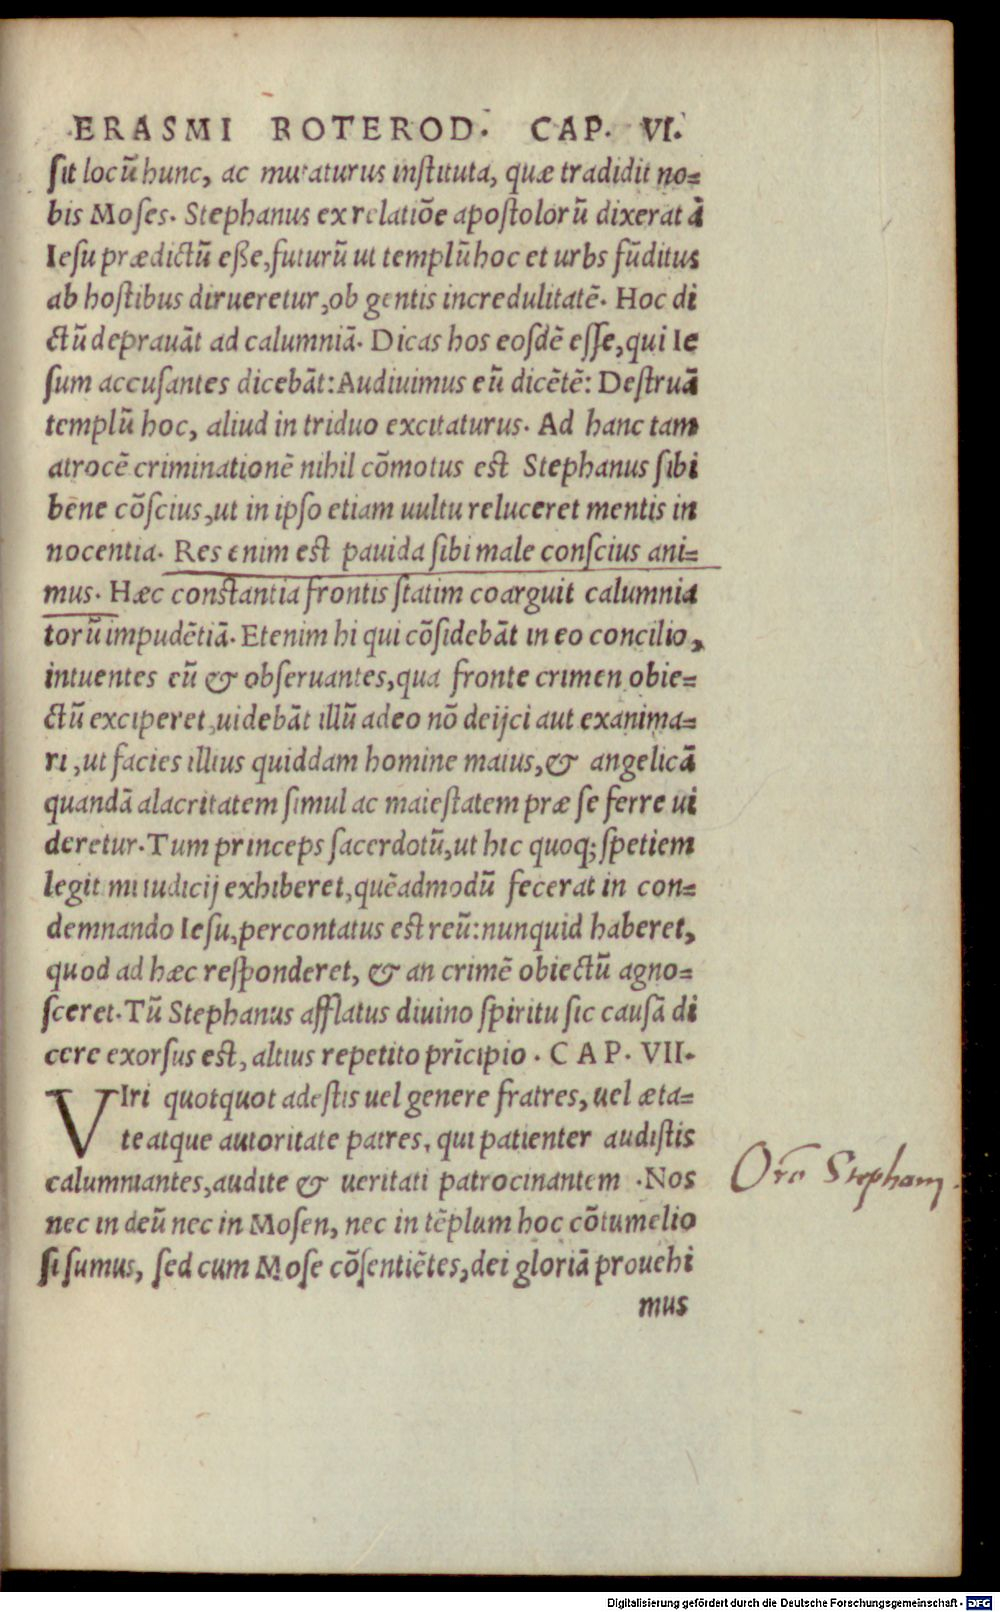 ERASMI ROTEROD. CAP. VI.
sit locũ hunc, ac mutaturus instituta, quæ tradidit no=
bis Moses. Stephanus ex relatiõe apostolorũ dixerat à
Iesu prædictũ eße, futurũ ut templũ hoc et urbs fũditus
ab hostibus dirueretur, ob gentis incredulitatẽ. Hoc di
ctũ deprauãt ad calumniã. Dicas hos eosdẽ esse, qui Ie
sum accusantes dicebãt: Audiuimus eũ dicẽtẽ: Destruã
templũ hoc, aliud in triduo excitaturus. Ad hanc tam
atrocẽ criminationẽ nihil cõmotus est Stephanus sibi
bene cõscius, ut in ipso etiam uultu reluceret mentis in
nocentia. Res enim est pauida sibi male conscius ani=
mus. Hæc constantia frontis statim coarguit calumnia
torũ impudẽtiã. Etenim hi qui cõsidebãt in eo concilio,
intuentes eũ & obseruantes, qua fronte crimen obie=
ctũ exciperet, uidebãt illũ adeo nõ deijci aut exanima=
ri, ut facies illius quiddam homine maius, & angelicã
quandã alacritatem simul ac maiestatem præ se ferre ui
deretur. Tum princeps sacerdotũ, ut hic quoq; spetiem
legitimi iudicij exhiberet, quẽadmodũ fecerat in con=
demnando Iesu, percontatus est reũ: nunquid haberet,
quod ad hæc responderet, & an crimẽ obiectũ agno=
sceret. Tũ Stephanus afflatus diuino spiritu sic causã di
cere exorsus est, altius repetito prĩcipio. CAP. VII.
VIri quotquot adestis uel genere fratres, uel æta=
te atque autoritate patres, qui patienter audistis
calumniantes, audite & ueritati patrocinantem. Nos
nec in deũ nec in Mosen, nec in tẽplum hoc cõtumelio
si sumus, sed cum Mose cõsentiẽtes, dei gloriã prouehi
mus
Oro Stephani.
Digitalisierung gefördert durch die Deutsche Forschungsgemeinschaft - DFG